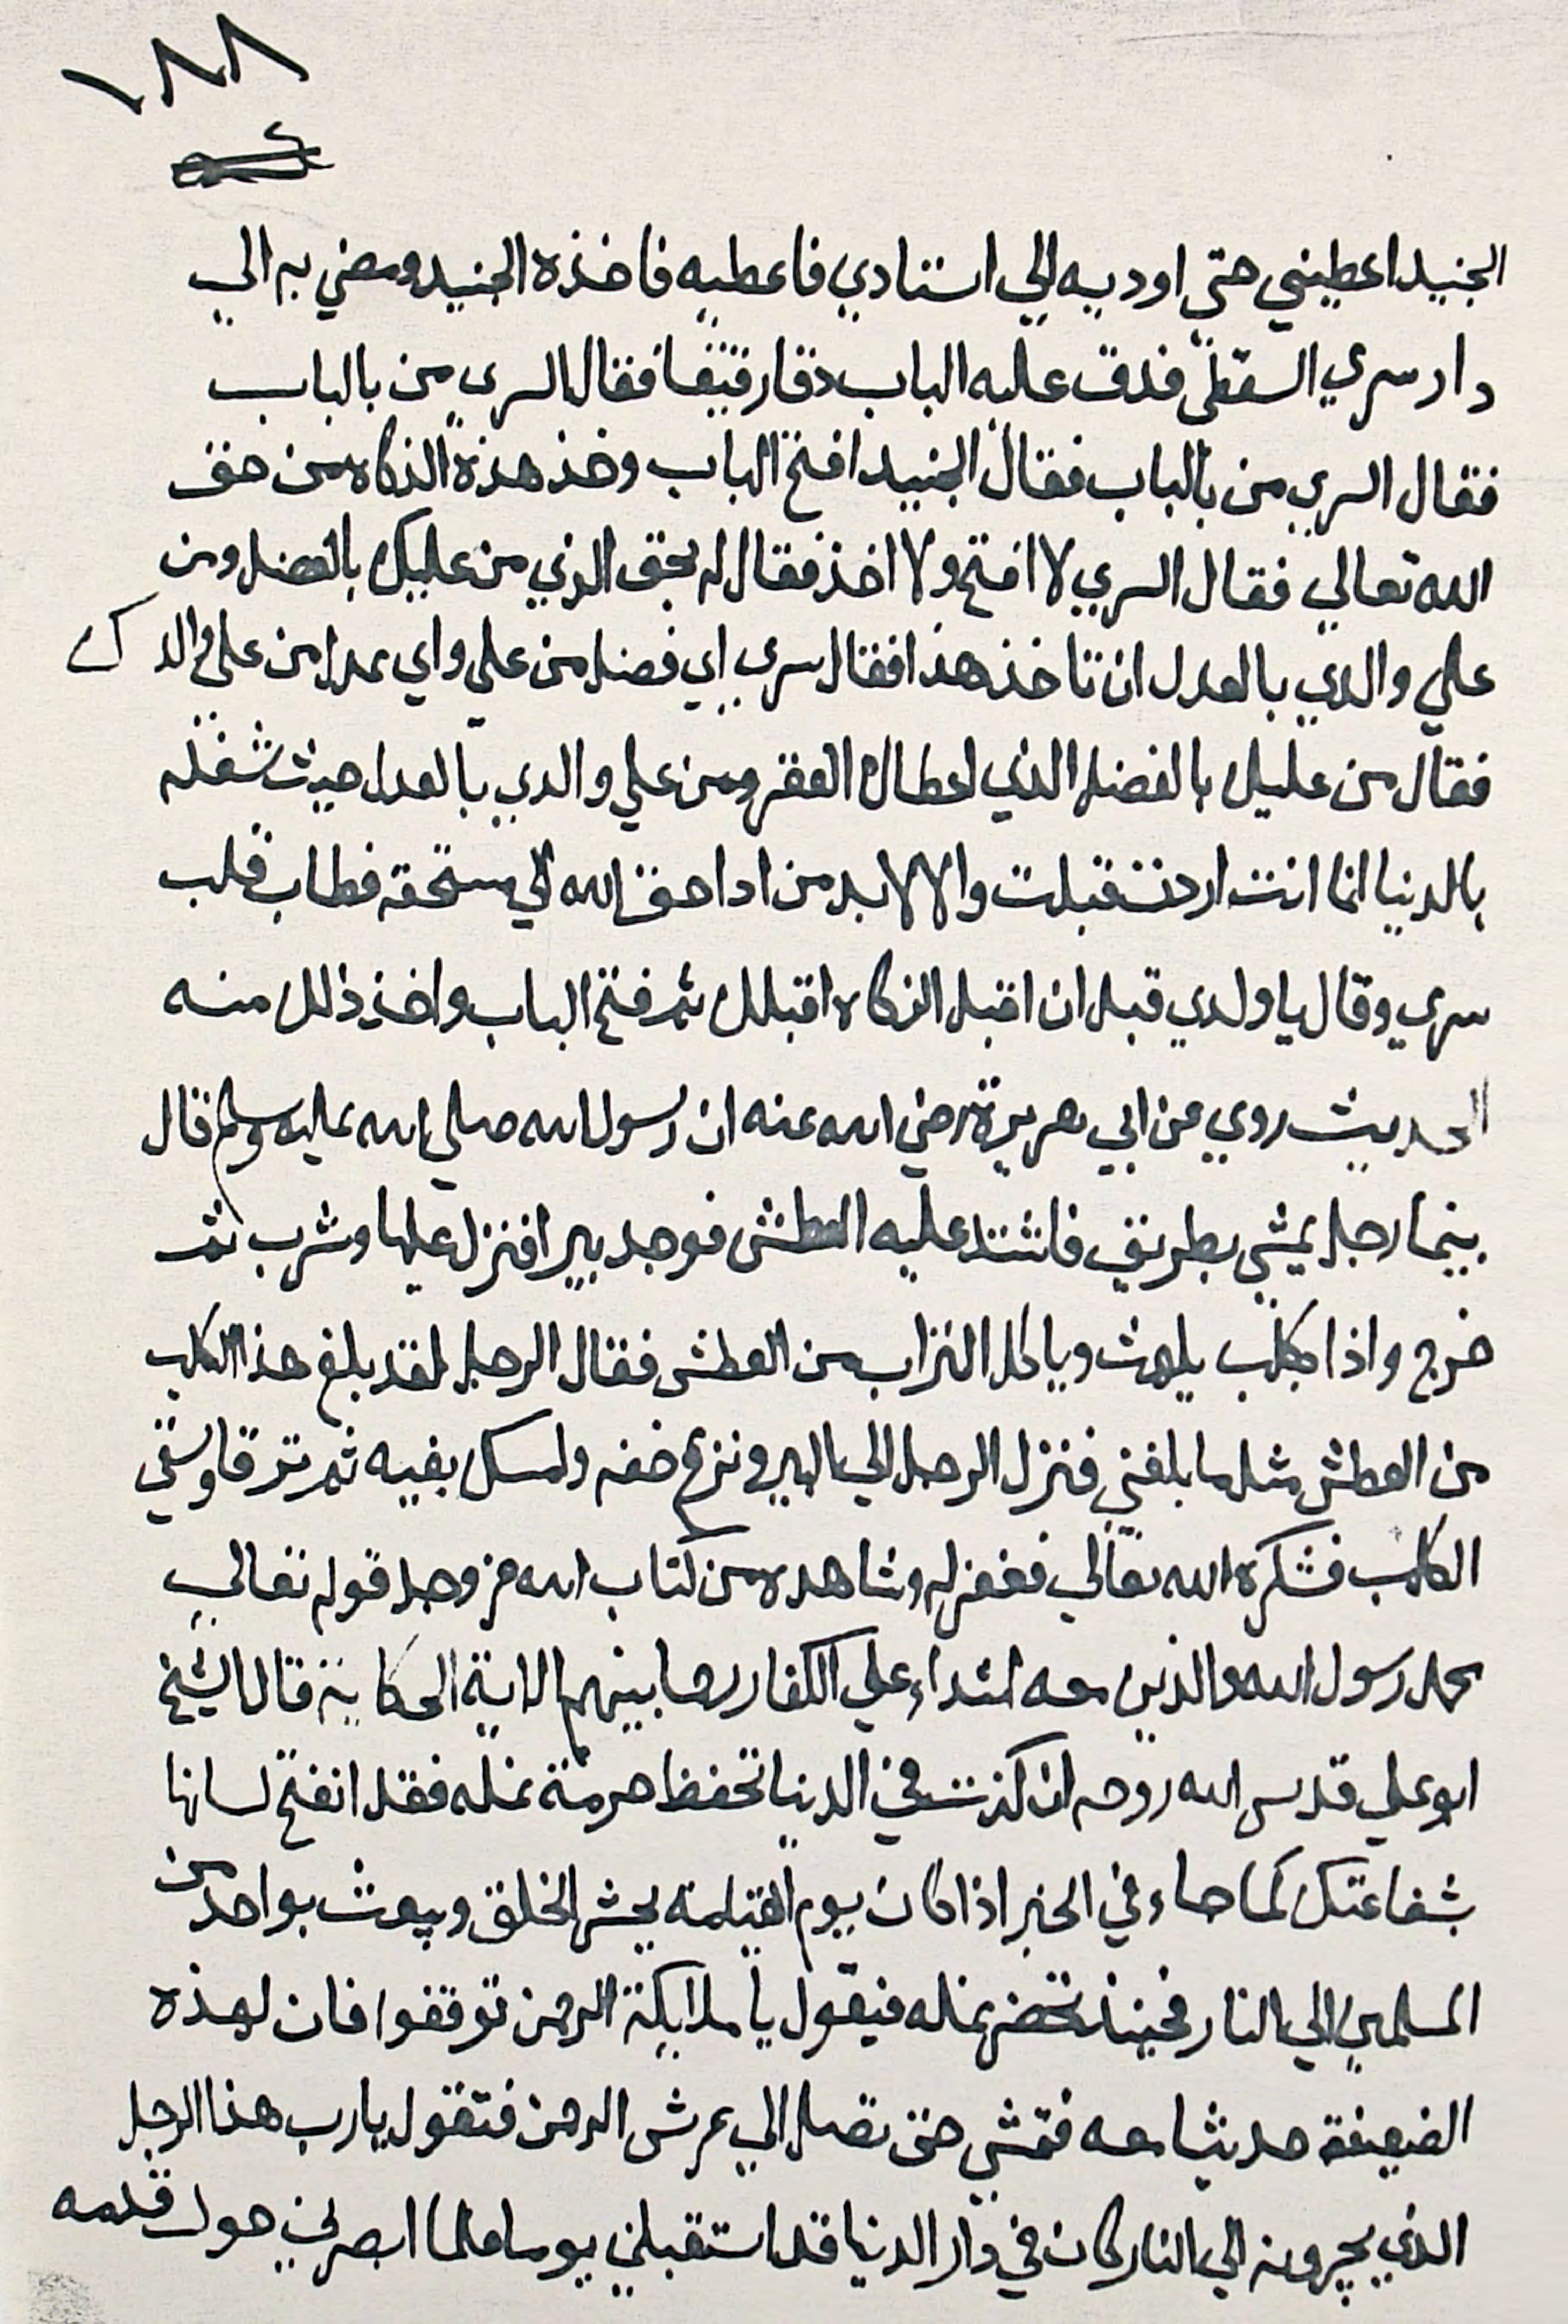 ١٨٨
الجنيد اعطيني حتى اوديه الي استادي فاعطيه فاخذه الجنيد ومضي به الي
دار سري السقطي فدق عليه الباب دقا رقيقا فقال السري من بالباب
فقال السري من بالباب فقال الجنيد افتح الباب وخذ هذة الذكاه من حق
الله تعالي فقال السري لا افتح ولا اخذ فقال له بحق الذي من عليك بالفضل ومن
علي والدي بالعدل ان تاخذ هذا فقال سري اي فضل من علي واي عدل من علي والدك
فقال من عليك بالفضل الذي اعطاك الفقر ومن علي والدي بالعدل حيث شغله
بالدنيا انما انت اردت قبلت والا لابد من ادا حق الله الي مستحقه فطاب قلب
سري وقال يا ولدي قبل ان اقبل الزكاه اقبلك ثم فتح الباب واخذ ذالك منه
الحديث روي عن ابي هريرة رضي الله عنه ان رسول الله صلي الله عليه وسلم قال
بينما رجل يمشي بطريق فاشتد عليه العطش فوجد بيرا فنزل عليها وشرب ثم
خرج واذا بكلب يلهث وياكل التراب من العطش فقال الرجل لقد بلغ هذا الكلب
من العطش مثل ما بلغني فنزل الرجل الي البير ونزع خفه ومسك بفيه ثم ترقا وسقي
الكلب فشكره الله تعالي فغفر له وشاهده من كتاب الله عز وجل قوله تعالي
محمد رسول الله والذين معه اشداء علي الكفار رحما بينهم الاية الحكاية قال الشيخ
ابو علي قدس الله روحه ان كنت في الدنيا تحفظ حرمة نمله فقد انفتح لسانها
بشفاعتك كما جاء في الخبر اذا كان يوم القيامه يحشر الخلق ويبعث بواحد من
المسلمين الي النار فحينئذ تحضر نمله فيقول يا ملايكة الرحمن توقفوا فان لهذه
الضعيفة حديثا معه فتمشي حتى تصل الي عرش الرحمن فتقول يا رب هذا الرجل
الذي يجرونه الي النار كان في دار الدنيا قد استقبلني يوما فلما ابصرني حول قدمه